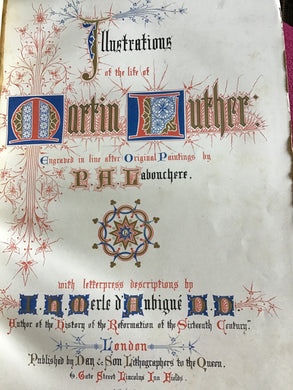 Illustrations
of the life of
Martin Luther.
Engraved in line after Original Paintings by
P. A. Labouchere.
with letterpress descriptions by
J. H. Merle d'Aubigné D. D.
Author of the History of the Reformation of the Sixteenth Century.
London
Published by Day & Son Lithographers to the Queen.
6. Gate Street Lincolns Inn Fields.